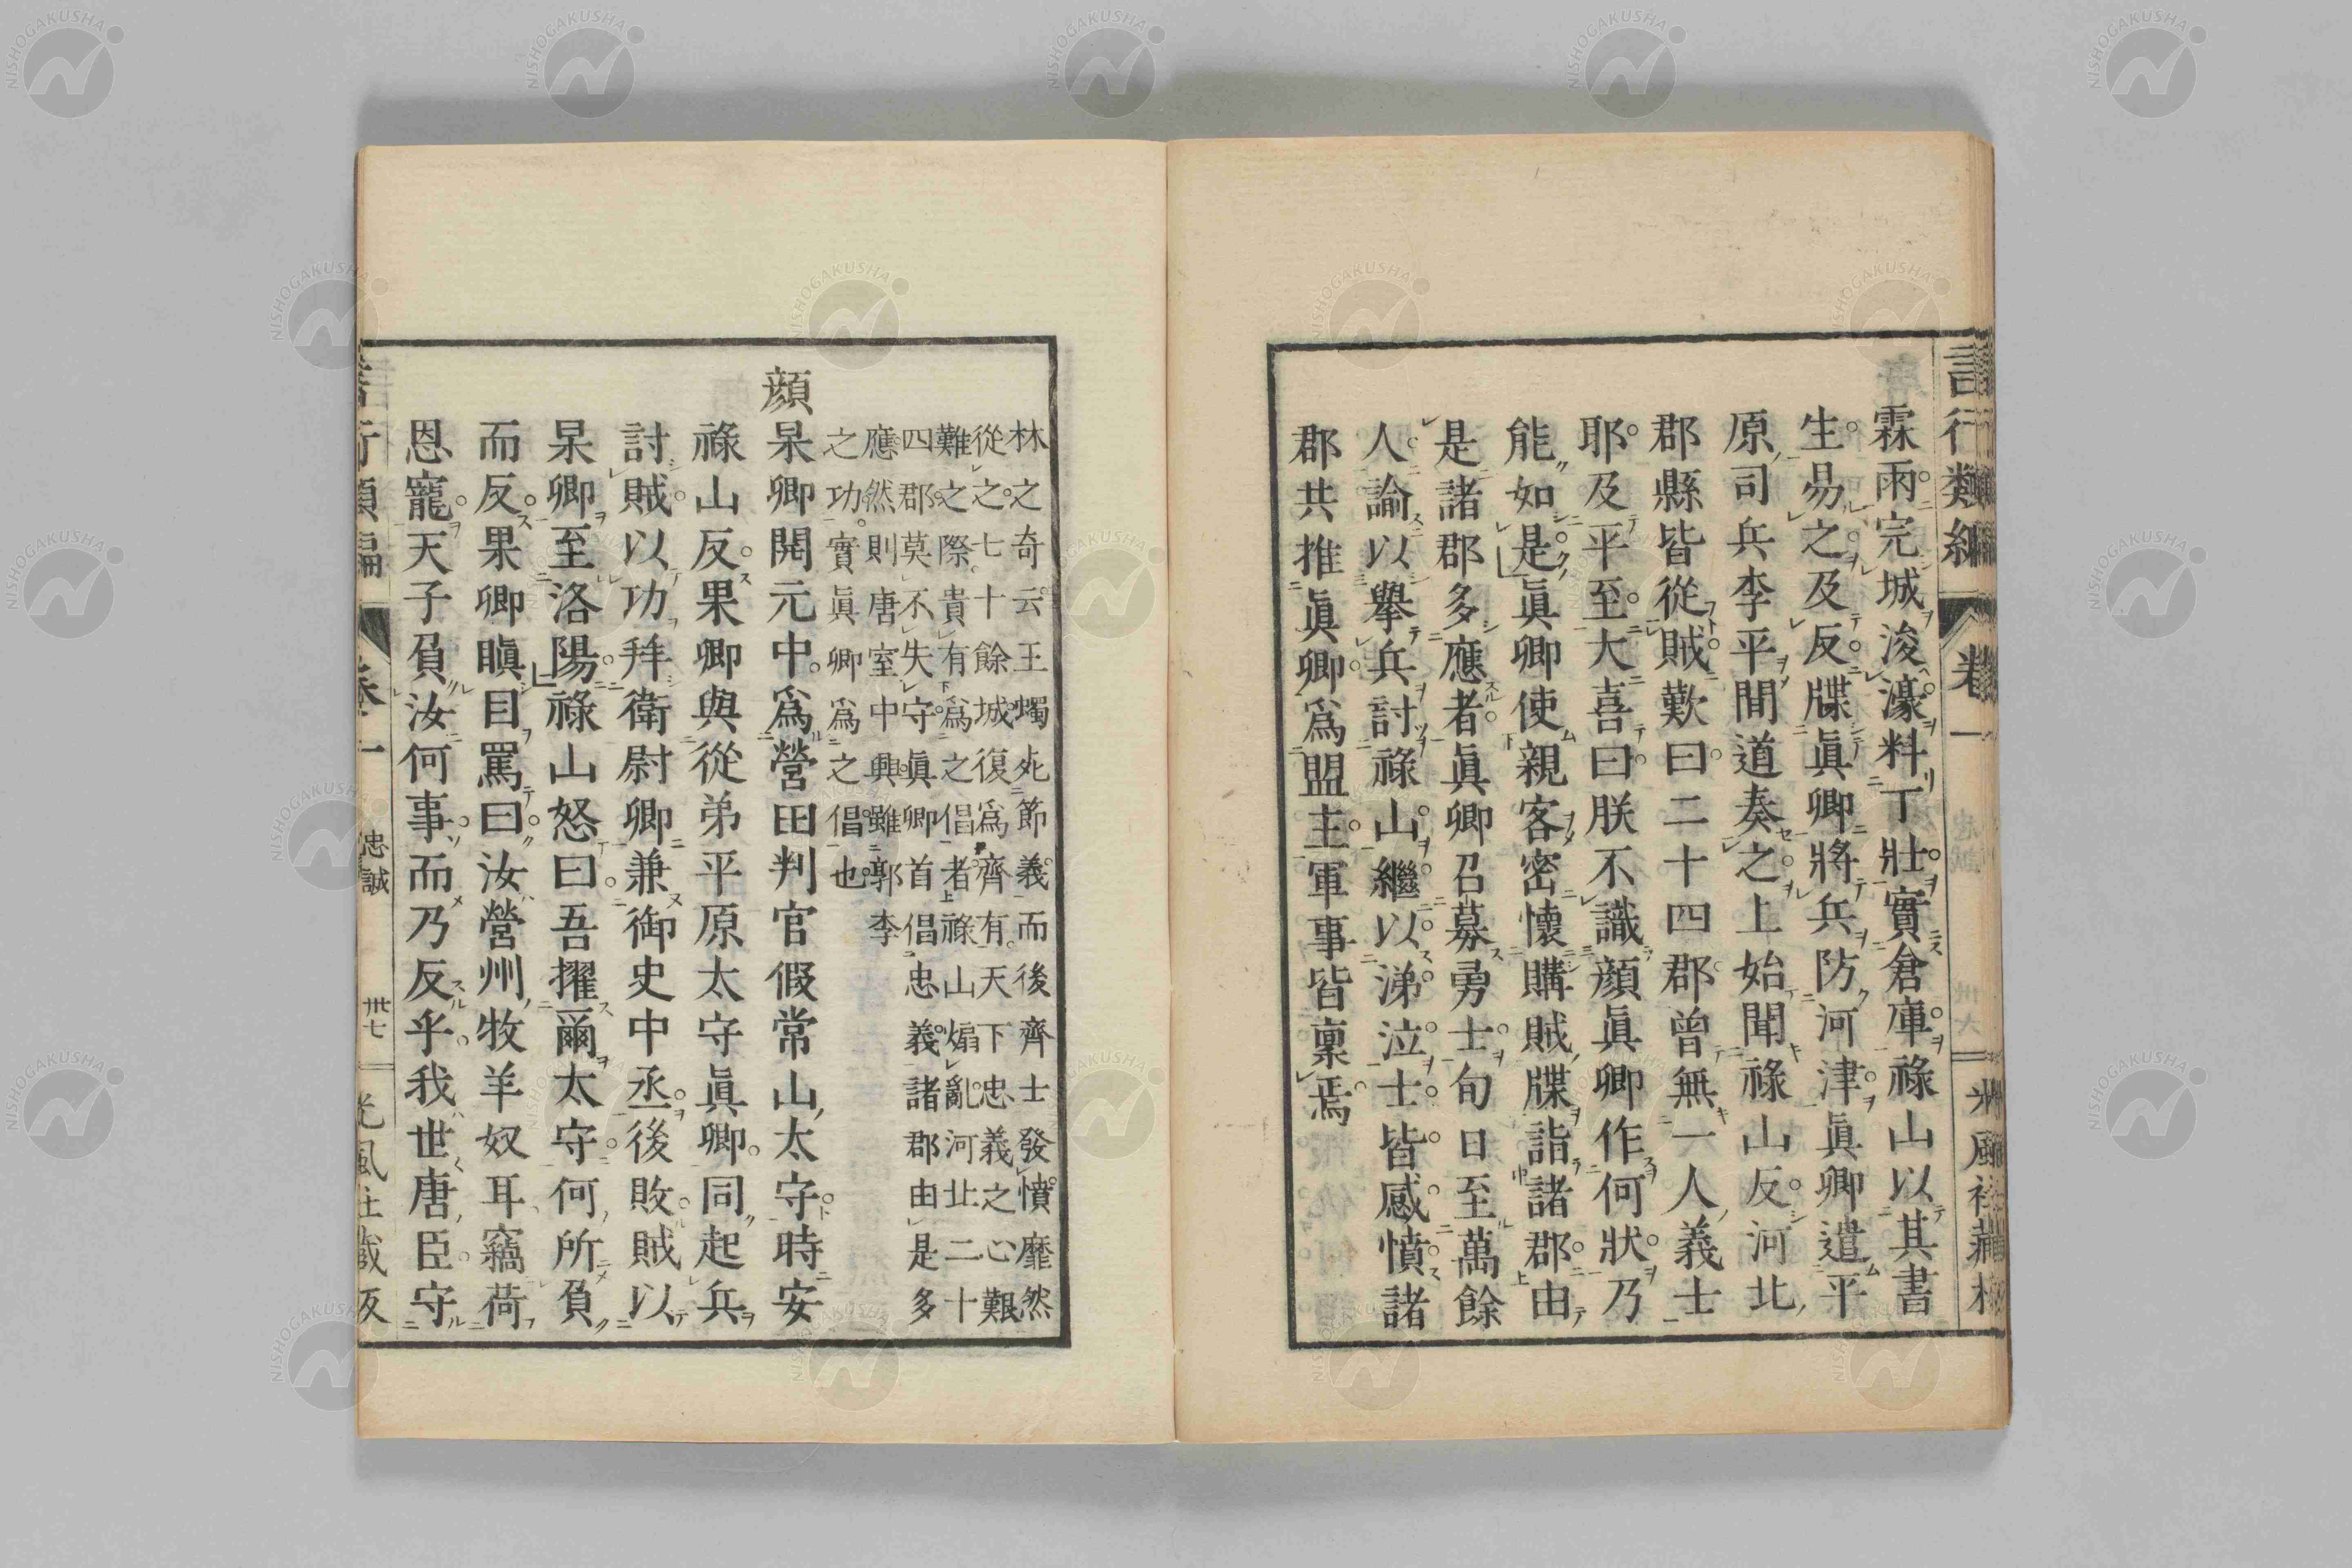 言行類編
卷一
霖雨完城浚濠料丁壯實倉庫祿山以其書
生易之及反牒眞卿將兵防河津眞卿遣平
原司兵李平間道奏之上始聞祿山反河北
郡縣皆從賊歎曰二十四郡曾無一人義士
耶及平至大喜曰朕不識顏眞卿作何狀乃
能如是眞卿使親客密懷購賊牒詣諸郡由
是諸郡多應者眞卿召募勇士旬日至萬餘
人諭以擧兵討祿山繼以涕泣士皆感憤諸
郡共推眞卿爲盟主軍事皆稟焉
林之奇云王蠋死節義而後齊士發憤靡然
從之七十餘城復爲齊有天下忠義之心艱
難之際貴有爲之倡者祿山煽亂河北二十
四郡莫不失守眞卿首倡忠義諸郡由是多
應然則唐室中興雖郭李
之功實眞卿爲之倡也
顏杲卿開元中爲營田判官假常山太守時安
祿山反果卿與從弟平原太守眞卿同起兵
討賊以功拜衛尉卿兼御史中丞後敗賊以
杲卿至洛陽祿山怒曰吾擢爾太守何所負
而反果卿瞋目罵曰汝營州牧羊奴耳竊荷
恩寵天子負汝何事而乃反乎我世唐臣守
忠誠
卅七
NISHOGAKUSHA